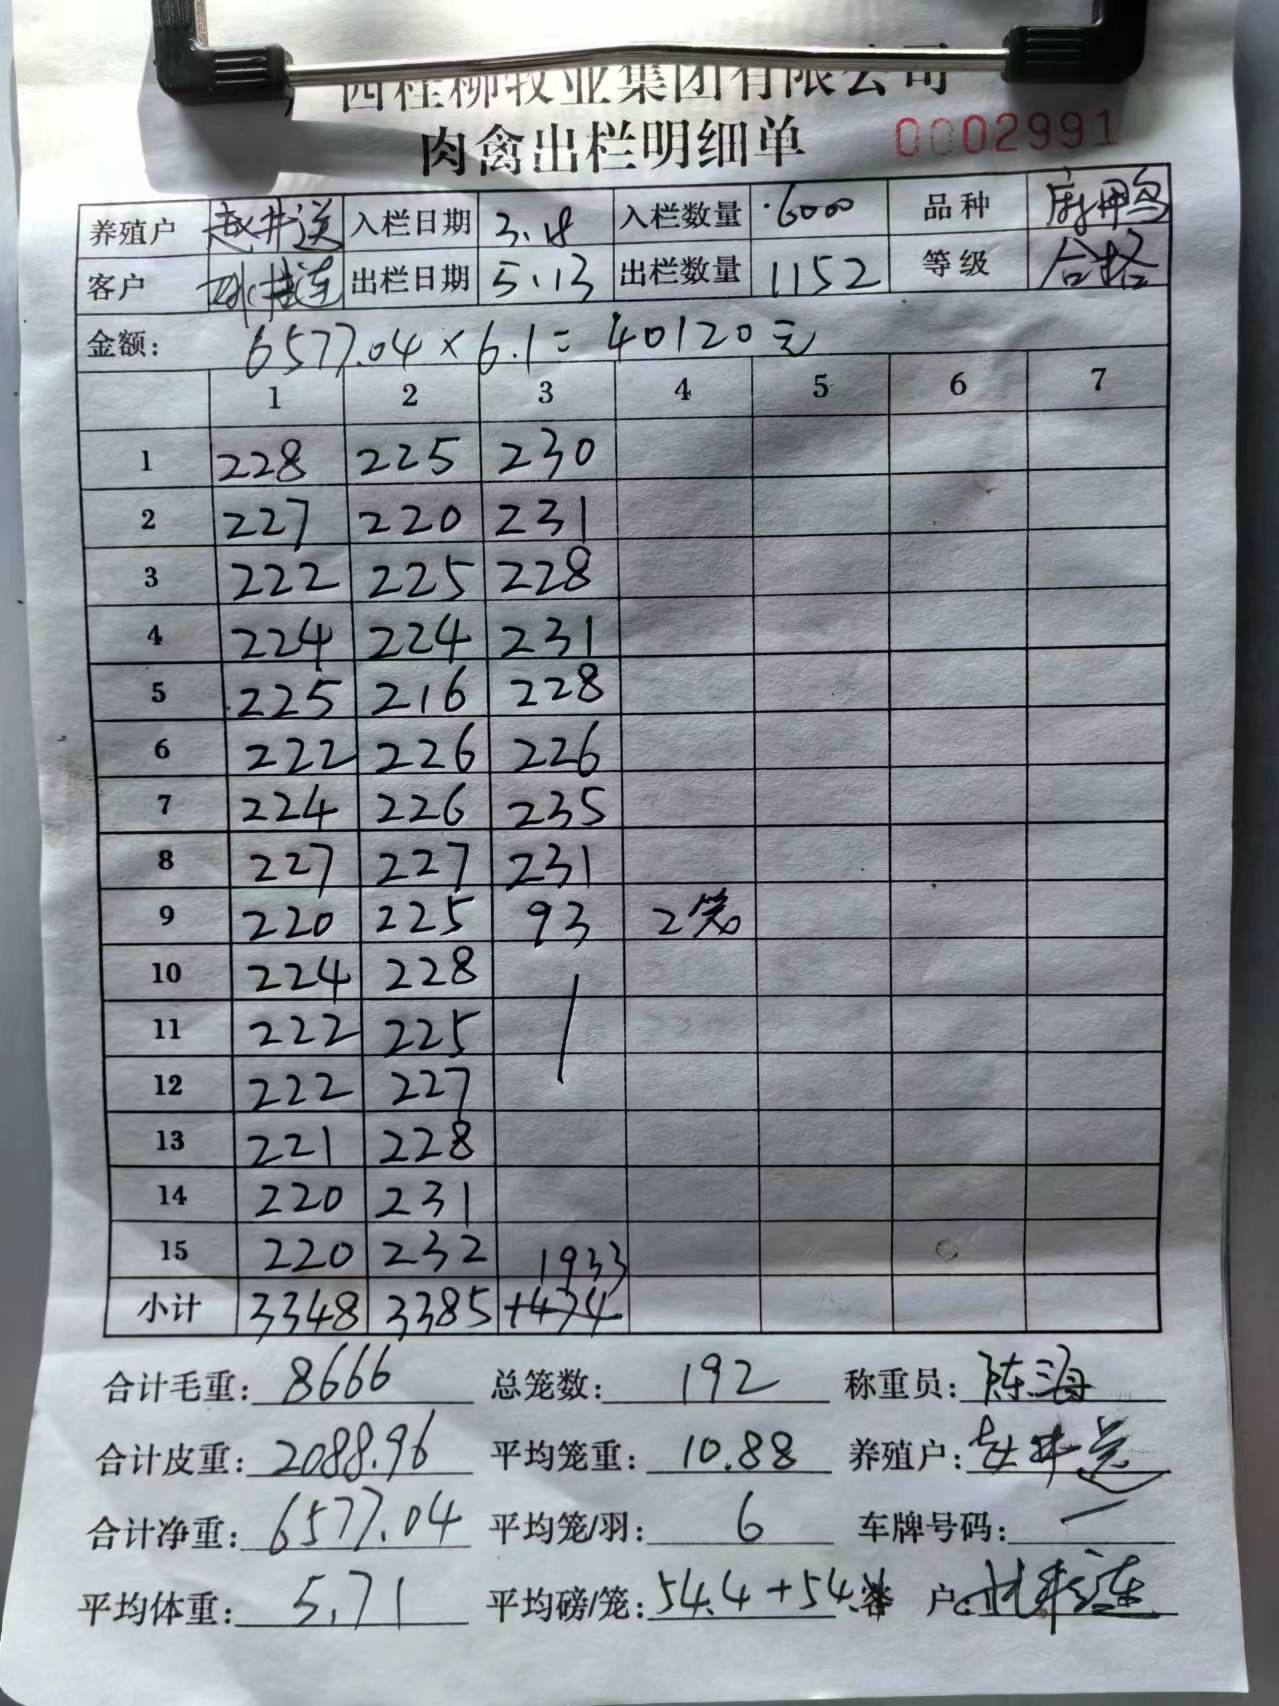 西桂柳牧业集团有限公司
肉禽出栏明细单 0002991
养殖户 赵井送 入栏日期 3.18 入栏数量 6000 品种 麻鸭
客户 出栏日期 5.13 出栏数量 1152 等级 合格
金额: 6577.04×6.1=40120元
1 2 3 4 5 6 7
1 228 225 230
2 227 220 231
3 222 225 228
4 224 224 231
5 225 216 228
6 222 226 226
7 224 226 235
8 227 227 231
9 220 225 93 2笼
10 224 228
11 222 225
12 222 227
13 221 228
14 220 231
15 220 232 1933
小计 3348 3385 +474
合计毛重: 8666 总笼数: 192 称重员: 陈海
合计皮重: 2088.96 平均笼重: 10.88 养殖户:
合计净重: 6577.04 平均笼/羽: 6 车牌号码: 一
平均体重: 5.71 平均磅/笼: 54.4+54. 客户: